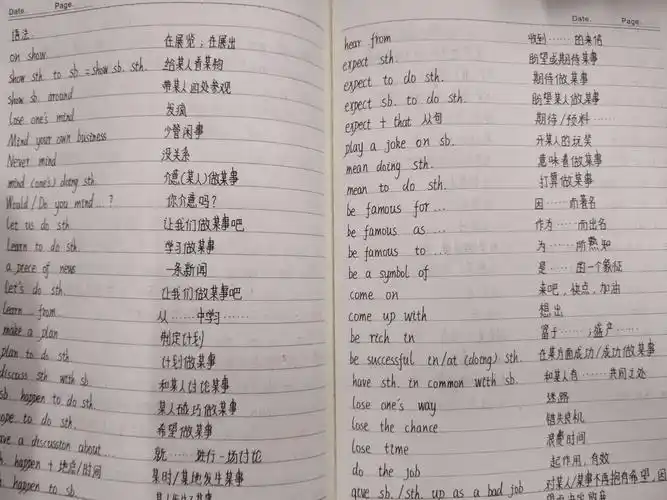 Date. Page.
语法:
on show 在展览；在展出
show sth. to sb. = show sb. sth. 给某人看某物
show sb. around 带某人四处参观
lose one's mind 发疯
Mind your own business 少管闲事
Never mind 没关系
mind (one's) doing sth. 介意(某人)做某事
Would / Do you mind...? 你介意吗?
let us do sth. 让我们做某事吧
learn to do sth. 学习做某事
a piece of news 一条新闻
let's do sth. 让我们做某事吧
learn from 从……中学习……
make a plan 制定计划
plan to do sth. 计划做某事
discuss sth with sb. 和某人讨论某事
sb. happen to do sth. 某人碰巧做某事
hope to do sth. 希望做某事
have a discussion about... 就……进行一场讨论
happen + 地点/时间 某时/某地发生某事
happen to sb.
Date. Page.
hear from 收到……的来信
expect sth. 盼望或期待某事
expect to do sth. 期待做某事
expect sb. to do sth. 盼望某人做某事
expect + that 从句 期待/预料……
play a joke on sb. 开某人的玩笑
mean doing sth. 意味着做某事
mean to do sth. 打算做某事
be famous for... 因……而著名
be famous as.... 作为……而出名
be famous to.... 为……所熟知
be a symbol of 是……的一个象征
come on 来吧，快点，加油
come up with 想出
be rich in 富于……;盛产……
be successful in/at (doing) sth. 在某方面成功/成功做某事
have sth. in common with sb. 和某人有……共同之处
lose one's way 迷路
lose the chance 错失良机
lose time 浪费时间
do the job 起作用，有效
give sb./sth. up as a bad job 对某人/某事不再抱有希望，因